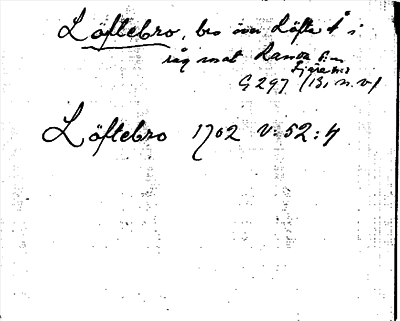 Löftebro, bro över Löfte å i
råg mot Ramsö s:n
G 297 (13, n. v)
Löftebro 1702 V: 52: 4